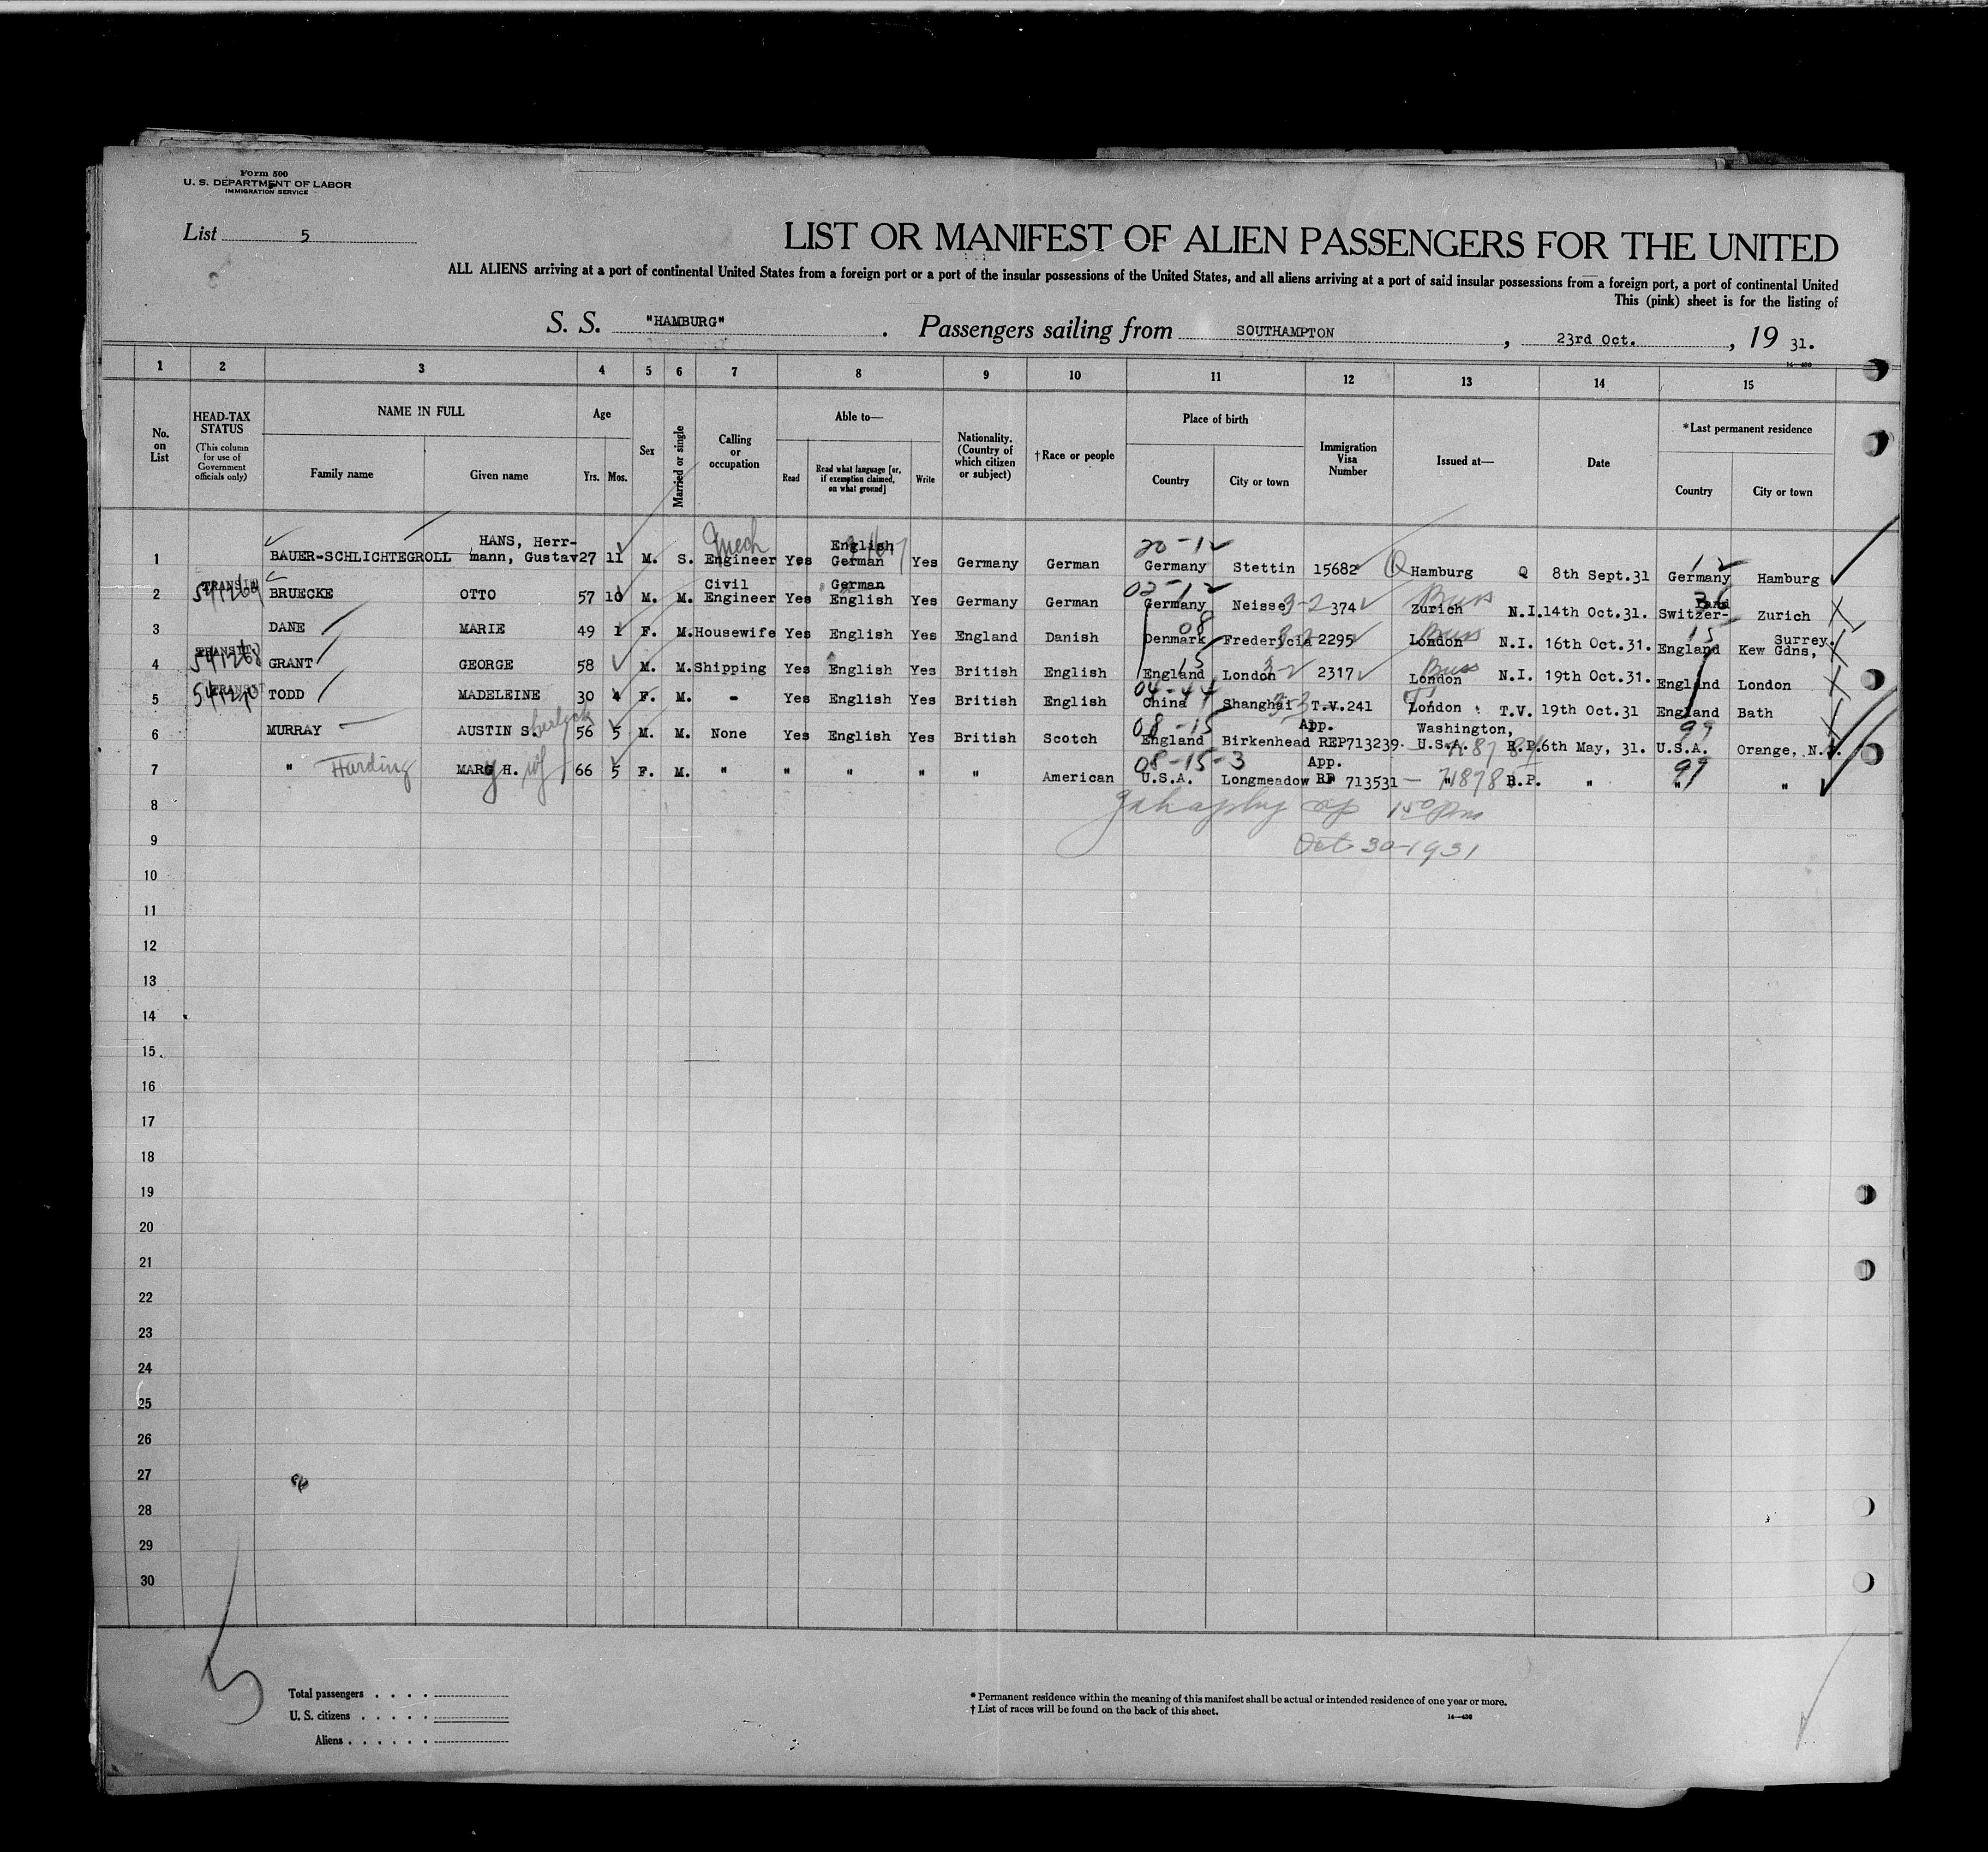 Form 500
U. S. DEPARTMENT OF LABOR
IMMIGRATION SERVICE
List 5
LIST OR MANIFEST OF ALIEN PASSENGERS FOR THE UNITED
ALL ALIENS arriving at a port of continental United States from a foreign port or a port of the insular possessions of the United States, and all aliens arriving at a port of said insular possessions from a foreign port, a port of continental United
This (pink) sheet is for the listing of
S. S. "HAMBURG" . Passengers sailing from SOUTHAMPTON , 23rd Oct. , 19 31.
1 2 3 4 5 6 7 8 9 10 11 12 13 14 15
No. on List
HEAD-TAX STATUS (This column for use of Government officials only)
NAME IN FULL
Family name Given name
Age
Yrs. Mos.
Sex
Married or single
Calling or occupation
Able to—
Read Read what language [or, if exemption claimed, on what ground] Write
Nationality. (Country of which citizen or subject)
†Race or people
Place of birth
Country City or town
Immigration Visa Number
Issued at—
Date
*Last permanent residence
Country City or town
HANS, Herr- Mech English 20-12 12
1 BAUER-SCHLICHTEGROLL mann, Gustav 27 11 M. S. Engineer Yes German Yes Germany German Germany Stettin 15682 Q Hamburg Q 8th Sept.31 Germany Hamburg
TRANSIT Civil German 02-12 Buss 36 land
2 BRUECKE OTTO 57 10 M. M. Engineer Yes English Yes Germany German Germany Neisse 3-2 374 Zurich N.I. 14th Oct.31. Switzer- Zurich
08 Buss 15 Surrey.
3 DANE MARIE 49 1 F. M. Housewife Yes English Yes England Danish Denmark Fredericia 2295 London N.I. 16th Oct.31. England Kew Gdns,
TRANSIT 541268 15 Buss
4 GRANT GEORGE 58 M. M. Shipping Yes English Yes British English England London 3-2 2317 London N.I. 19th Oct.31. England London
TRANSIT 04-44
5 TODD MADELEINE 30 4 F. M. - Yes English Yes British English China Shanghai 3-3 T.V.241 London T.V. 19th Oct.31 England Bath
08-15 App. Washington, 99
6 MURRAY AUSTIN S. 56 5 M. M. None Yes English Yes British Scotch England Birkenhead REP713239 U.S.A. R.P. 6th May, 31. U.S.A. Orange, N.J.
08-15-3 App. 99
7 " Harding MARG H. wf 66 5 F. M. " " " " " American U.S.A. Longmeadow RP 713531 " R.P. " " "
8 150 pm
9 Oct 30-1931
10
11
12
13
14
15
16
17
18
19
20
21
22
23
24
25
26
27
28
29
30
5
Total passengers . . . .
U. S. citizens . . . . .
Aliens . . . . . .
* Permanent residence within the meaning of this manifest shall be actual or intended residence of one year or more.
† List of races will be found on the back of this sheet.